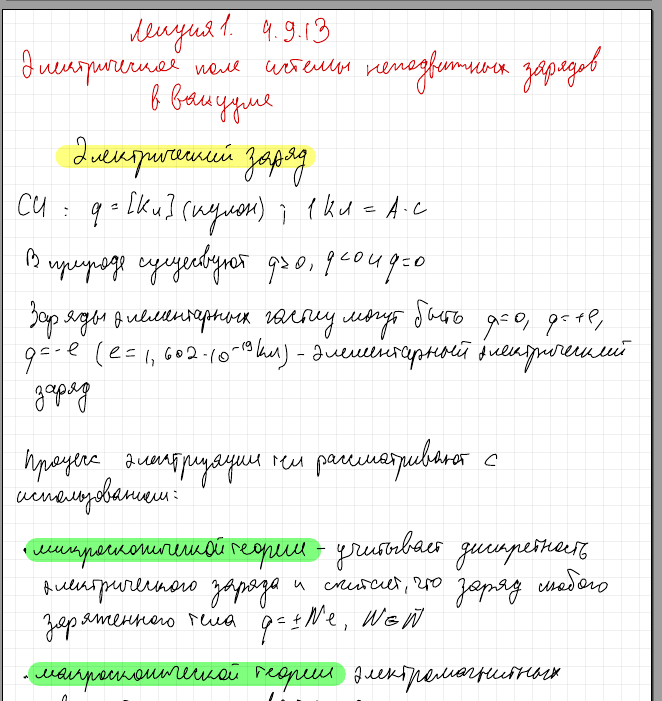 Лекция 1. 4.9.13
Электрическое поле системы неподвижных зарядов
в вакууме
Электрический заряд
СИ: q = [Кл] (кулон) ; 1 Кл = А·с
В природе существуют q>0, q<0 и q=0
Заряды элементарных частиц могут быть q=0, q=+e,
q=-e (e=1,602·10⁻¹⁹Кл) - элементарный электрический
заряд
Процесс электризации тел рассматривают с
использованием:
·микроскопической теории - учитывает дискретность
электрического заряда и считает, что заряд любого
заряженного тела q=±Ne, N∈N
·макроскопической теории электромагнитных